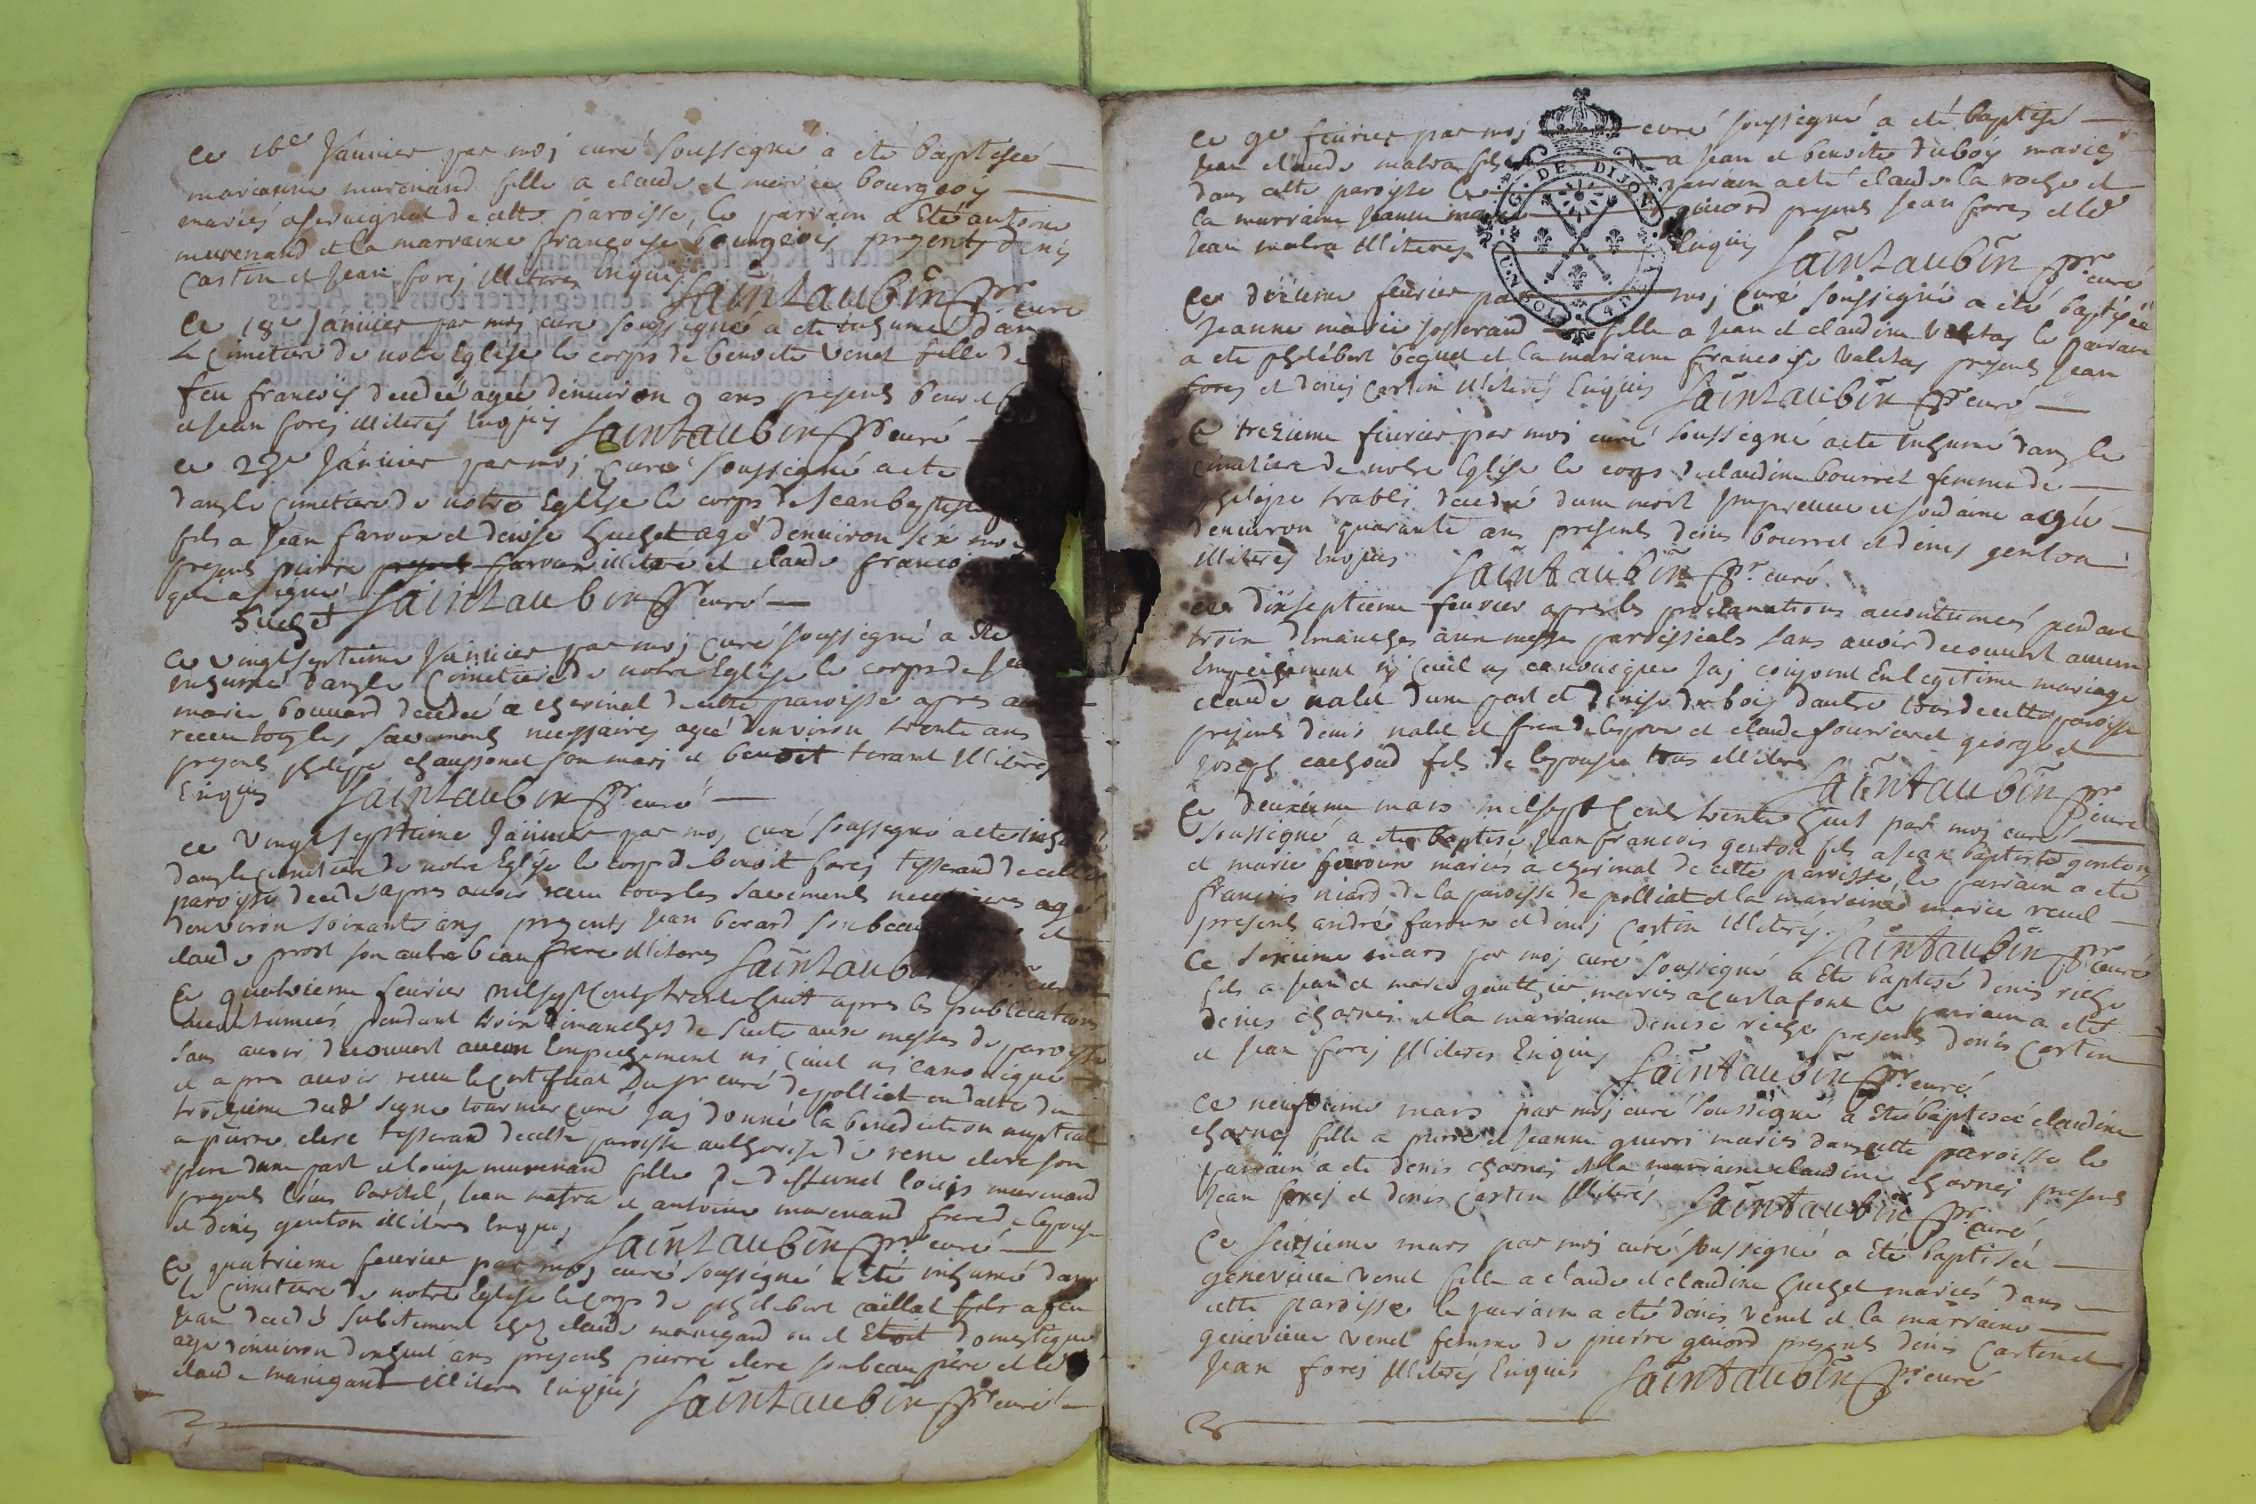 ce 16e Janvier par moj curé soussigné a eté baptisée
marianne murenand fille a claude et mervie bourgeois
mariés a de cette paroisse, le parrain a Eté antoine
murenand et la marraine françoise bourgeois presents denis
Castin et Jean forej illiteres Enquis Saintaubin Ptre curé
Ce 18e Janvier par moj curé soussigné a eté inhumée dans
Le Cimetiere de notre Eglise le corps de benoite Venet fille de
feu francois decedée agée denviron 9 ans presents
et Jean forej illiterés Enquis Saintaubin Ptre curé
ce 23e Janvier par moj curé soussigné a eté
dans le cimetiere de notre Eglise le corps de Jean baptiste
fils a Jean faroux et denise huchet agé denviron six mois
presents pierre presents faroux illitéré et claude françois
qui a signé
huchet Saintaubin Ptre curé
Ce vingtseptieme Janvier par moj curé soussigné a Eté
inhumé dans le Cimetiere de notre Eglise le corps de
marie bouvard decedée a cherinal de cette paroisse apres avoir
receu tous les sacrements necessaires agée denviron trente ans
presents philippe chaussonet son marj et benoit torant illiteres
Enquis Saintaubin Ptre curé
ce vingtseptieme Janvier par moj curé soussigné a eté
dans le cimetiere de notre Eglise le corps de benoit forej tisserand de cette
paroisse decedé apres avoir receu tous les sacrements necessaires agé
denviron soixante ans presents Jean berard son beau
claude prost son autre beau frere illiteres Saintaubin
Ce quatrieme fevrier milsept cents trente huit apres les publications
accoutumées pendant trois dimanches de suite aux messes de paroisse
sans avoir decouvert aucun Empechement nj Civil nj canonique
et apres avoir receu le certificat du sr curé de polliat en datte du
troisieme dud signé tournier curé jaj donné la benediction nuptiale
a pierre clere tisserand de cette paroisse authorisé de rene clere son
pere dune part et louise murenand fille de deffunct louis murenand
presents louis barthel, Jean matra et antoine murenand frere de lepouse
et denis genton illiteres Enquis Saintaubin Ptre curé
Ce quatrieme fevrier par moj curé soussigné a Eté inhumé dans
le Cimetiere de notre Eglise le corps de philibert Caillat fils a feu
Jean decedé subitement chez claude manigand ou il Etoit domestique
agé denviron dixhuit ans presents pierre clere son beau pere et led
claude manigand illiteres Enquis Saintaubin Ptre curé
Ce 9e fevrier par moj curé soussigné a eté baptisé
Jean claude matra fils a Jean et benoite duboy mariés
dans cette paroisse le parrain a eté claude la roche et
la marraine Jeanne marie guiord presents Jean forej et led
Jean matra illiteres Enquis Saintaubin Ptre curé
Ce dixieme fevrier par moj Curé soussigné a eté baptisée
Jeanne marie josserand fille a Jean et claudine Valetas le parrain
a eté philibert boquet et la marraine francoise valetas presents Jean
forej et denis Castin illiterés Enquis Saintaubin Ptre curé
Ce trezieme fevrier par moj curé soussigné a eté Inhumé dans le
Cimetiere de notre Eglise le corps de claudine bourret femme de
philippe trabli decedée dune mort Impreveue et soudaine agée
denviron quarante ans presents denis bourret et denis genton
illiteres Enquis Saintaubin Ptre curé.
ce dixseptieme fevrier apres les proclamations accoutumées pendant
trois dimanches aux messes paroissiales sans avoir decouvert aucun
Empechement nj Civil nj canonique jaj conjoint En legitime mariage
claude nalet dune part et denise du bois dautre tous de cette paroisse
presents denis nalet et frere de lepoux et claude fourrier et george et
Joseph cachoud fils de lepouse tous illiteres Saintaubin Ptre curé
Ce deuxieme mars milsept Cents trente huit par moj curé
soussigné a eté baptisé Jean francois genton fils a Jean baptiste genton
et marie faroux mariés a cherinal de cette paroisse, le parrain a eté
francois niard de la paroisse de polliat et la marraine marie revel
presents andré faroux et denis Castin illiterés. Saintaubin Ptre curé
Ce sixieme mars par moj curé soussigné a Eté baptisé denis riche
fils a Jean et marie gauthier mariés a curtafont le parrain a eté
denis charnei et la marraine denise riche presents denis Castin
et Jean forej illiteres Enquis Saintaubin Ptre curé
Ce neufvieme mars par moj curé soussigné a Eté baptiseé claudine
charnej fille a pierre et Jeanne guerri mariés dans cette paroisse le
parrain a eté denis charnei et la marraine claudine charnej presents
Jean forej et denis Castin illiterés Saintaubin Ptre curé
Ce seizieme mars par moj curé soussigné a Eté baptisée
genevieve Venet fille a claude et claudine huchet mariés dans
cette paroisse le parrain a eté denis Venet et la marraine
genevieve venet femme de pierre guiord presents denis Castin et
Jean forej illiterés Enquis Saintaubin Ptre curé
DE DIJON